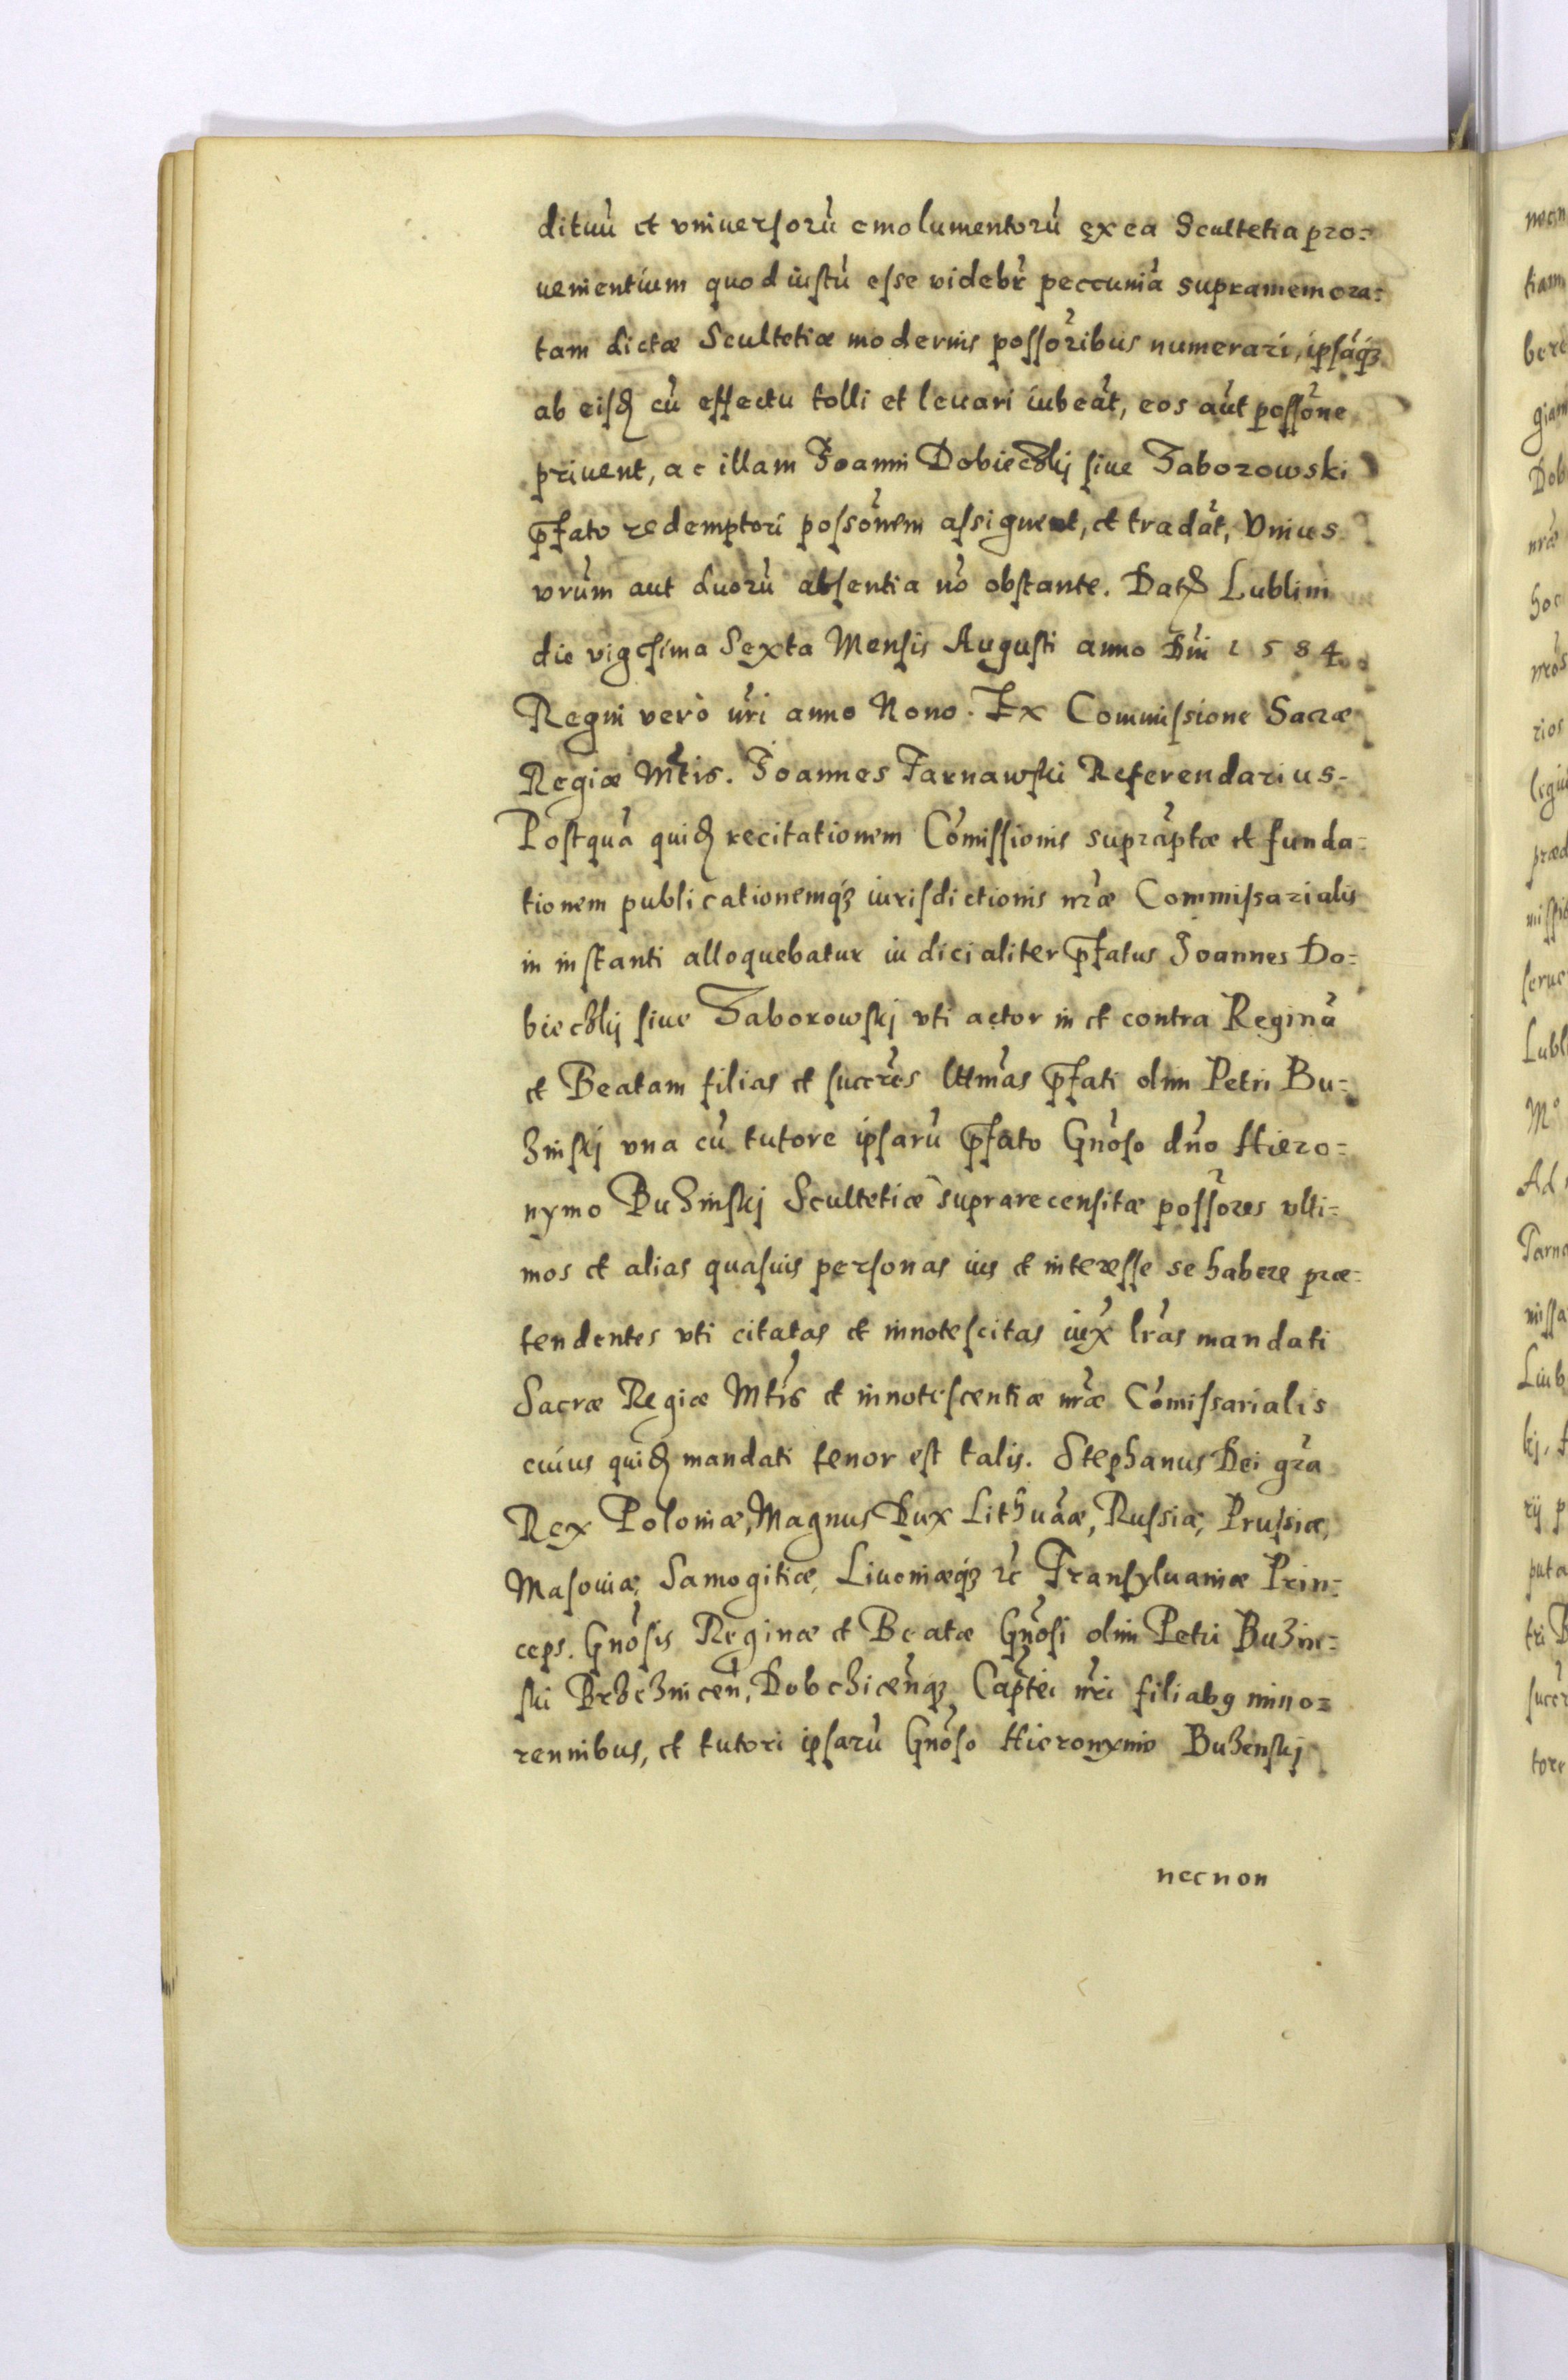 dituũ et vniuersorũ emolumentorũ ex ea Scultetia pro=
uenientium quod iustũ esse videbr̃ peccuniã supramemora=
tam dictæ Scultetiæ modernis possor̃ibus numerari, ipsãq;
ab eisd cũ effectu tolli et leuari iubeãt, eos aũt possõne
priuent, ac illam Joanni Dobieczkij siue Zaborowski
p̃fato redemptori possõnem assignent, et tradãt, Vnius
vr̃um aut duorũ absentia nõ obstante. Dat Lublini
die vigesima Sexta Mensis Augusti anno Dñi 1584
Regni verò nr̃i anno Nono. Ex Commissione Sacræ
Regiæ Mt̃is. Joannes Tarnawski Referendarius.
Postquã quid recitationem Cõmissionis suprãptæ et funda=
tionem publicationemq; iurisdictionis nr̃æ Commissarialis
in instanti alloquebatur iudicialiter p̃fatus Joannes Do=
bieczkij siue Zaborowskj vti actor in et contra Reginã
et Beatam filias et succr̃es lttm̃as p̃fati olim Petri Bu=
zinskj vna cũ tutore ipsarũ p̃fato Gnõso dño Hiero=
nymo Buzinskj Scultetiæ suprarecensitæ possõres vlti=
mos et alias quasuis personas ius et interesse se habere præ=
tendentes vti citatas et innotescitas iux̃ lr̃as mandati
Sacræ Regiæ Mt̃is et innotescentiæ nr̃æ Cõmissarialis
cuius quid mandati tenor est talis. Stephanus Dei gr̃a
Rex Poloniæ, Magnus Dux Lithuãæ, Russiæ, Prussiæ,
Masouiæ, Samogitiæ, Liuoniæq; ꝛc̃ Transyluaniæ Prin=
ceps. Gnõsis Reginæ et Beatæ Gnõsi olim Petri Buzin=
ski Brzezniceñ, Dobcziceñq; Capt̃ei nr̃i filiabꝯ mino=
rennibus, et tutori ipsarũ Gnõso Hieronymo Buzenskj
necnon